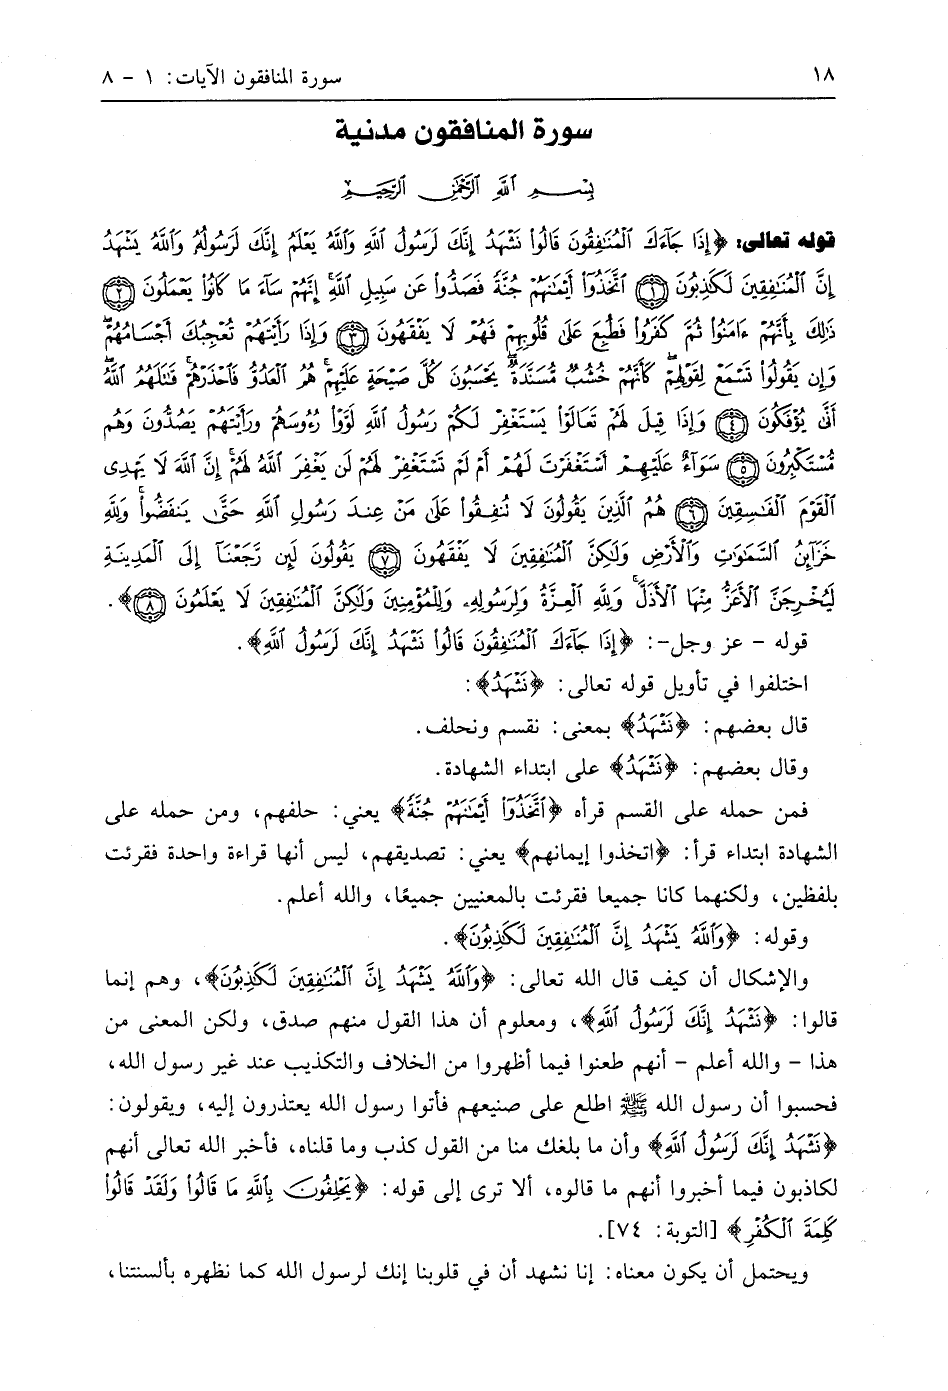 ١٨
سورة المنافقون الآيات: ١ - ٨
سورة المنافقون مدنية
بِسْمِ ٱللَّهِ ٱلرَّحْمَٰنِ ٱلرَّحِيمِ
قوله تعالى: ﴿إِذَا جَآءَكَ ٱلْمُنَٰفِقُونَ قَالُوا۟ نَشْهَدُ إِنَّكَ لَرَسُولُ ٱللَّهِ وَٱللَّهُ يَعْلَمُ إِنَّكَ لَرَسُولُهُۥ وَٱللَّهُ يَشْهَدُ
إِنَّ ٱلْمُنَٰفِقِينَ لَكَٰذِبُونَ ﴿١﴾ ٱتَّخَذُوٓا۟ أَيْمَٰنَهُمْ جُنَّةً فَصَدُّوا۟ عَن سَبِيلِ ٱللَّهِۚ إِنَّهُمْ سَآءَ مَا كَانُوا۟ يَعْمَلُونَ ﴿٢﴾
ذَٰلِكَ بِأَنَّهُمْ ءَامَنُوا۟ ثُمَّ كَفَرُوا۟ فَطُبِعَ عَلَىٰ قُلُوبِهِمْ فَهُمْ لَا يَفْقَهُونَ ﴿٣﴾ وَإِذَا رَأَيْتَهُمْ تُعْجِبُكَ أَجْسَامُهُمْۖ
وَإِن يَقُولُوا۟ تَسْمَعْ لِقَوْلِهِمْۖ كَأَنَّهُمْ خُشُبٌ مُّسَنَّدَةٌۖ يَحْسَبُونَ كُلَّ صَيْحَةٍ عَلَيْهِمْۚ هُمُ ٱلْعَدُوُّ فَٱحْذَرْهُمْۚ قَٰتَلَهُمُ ٱللَّهُۖ
أَنَّىٰ يُؤْفَكُونَ ﴿٤﴾ وَإِذَا قِيلَ لَهُمْ تَعَالَوْا۟ يَسْتَغْفِرْ لَكُمْ رَسُولُ ٱللَّهِ لَوَّوْا۟ رُءُوسَهُمْ وَرَأَيْتَهُمْ يَصُدُّونَ وَهُم
مُّسْتَكْبِرُونَ ﴿٥﴾ سَوَآءٌ عَلَيْهِمْ أَسْتَغْفَرْتَ لَهُمْ أَمْ لَمْ تَسْتَغْفِرْ لَهُمْ لَن يَغْفِرَ ٱللَّهُ لَهُمْۚ إِنَّ ٱللَّهَ لَا يَهْدِى
ٱلْقَوْمَ ٱلْفَٰسِقِينَ ﴿٦﴾ هُمُ ٱلَّذِينَ يَقُولُونَ لَا تُنفِقُوا۟ عَلَىٰ مَنْ عِندَ رَسُولِ ٱللَّهِ حَتَّىٰ يَنفَضُّوا۟ۗ وَلِلَّهِ
خَزَآئِنُ ٱلسَّمَٰوَٰتِ وَٱلْأَرْضِ وَلَٰكِنَّ ٱلْمُنَٰفِقِينَ لَا يَفْقَهُونَ ﴿٧﴾ يَقُولُونَ لَئِن رَّجَعْنَآ إِلَى ٱلْمَدِينَةِ
لَيُخْرِجَنَّ ٱلْأَعَزُّ مِنْهَا ٱلْأَذَلَّۚ وَلِلَّهِ ٱلْعِزَّةُ وَلِرَسُولِهِۦ وَلِلْمُؤْمِنِينَ وَلَٰكِنَّ ٱلْمُنَٰفِقِينَ لَا يَعْلَمُونَ ﴿٨﴾﴾.
قوله - عز وجل-: ﴿إِذَا جَآءَكَ ٱلْمُنَٰفِقُونَ قَالُوا۟ نَشْهَدُ إِنَّكَ لَرَسُولُ ٱللَّهِ﴾.
اختلفوا في تأويل قوله تعالى: ﴿نَشْهَدُ﴾:
قال بعضهم: ﴿نَشْهَدُ﴾ بمعنى: نقسم ونحلف.
وقال بعضهم: ﴿نَشْهَدُ﴾ على ابتداء الشهادة.
فمن حمله على القسم قرأه ﴿ٱتَّخَذُوٓا۟ أَيْمَٰنَهُمْ جُنَّةً﴾ يعني: حلفهم، ومن حمله على
الشهادة ابتداء قرأ: ﴿اتخذوا إيمانهم﴾ يعني: تصديقهم، ليس أنها قراءة واحدة فقرئت
بلفظين، ولكنهما كانا جميعا فقرئت بالمعنيين جميعًا، والله أعلم.
وقوله: ﴿وَٱللَّهُ يَشْهَدُ إِنَّ ٱلْمُنَٰفِقِينَ لَكَٰذِبُونَ﴾.
والإشكال أن كيف قال الله تعالى: ﴿وَٱللَّهُ يَشْهَدُ إِنَّ ٱلْمُنَٰفِقِينَ لَكَٰذِبُونَ﴾، وهم إنما
قالوا: ﴿نَشْهَدُ إِنَّكَ لَرَسُولُ ٱللَّهِ﴾، ومعلوم أن هذا القول منهم صدق، ولكن المعنى من
هذا - والله أعلم - أنهم طعنوا فيما أظهروا من الخلاف والتكذيب عند غير رسول الله،
فحسبوا أن رسول الله ﷺ اطلع على صنيعهم فأتوا رسول الله يعتذرون إليه، ويقولون:
﴿نَشْهَدُ إِنَّكَ لَرَسُولُ ٱللَّهِ﴾ وأن ما بلغك منا من القول كذب وما قلناه، فأخبر الله تعالى أنهم
لكاذبون فيما أخبروا أنهم ما قالوه، ألا ترى إلى قوله: ﴿يَحْلِفُونَ بِٱللَّهِ مَا قَالُوا۟ وَلَقَدْ قَالُوا۟
كَلِمَةَ ٱلْكُفْرِ﴾ [التوبة: ٧٤].
ويحتمل أن يكون معناه: إنا نشهد أن في قلوبنا إنك لرسول الله كما نظهره بألسنتنا،